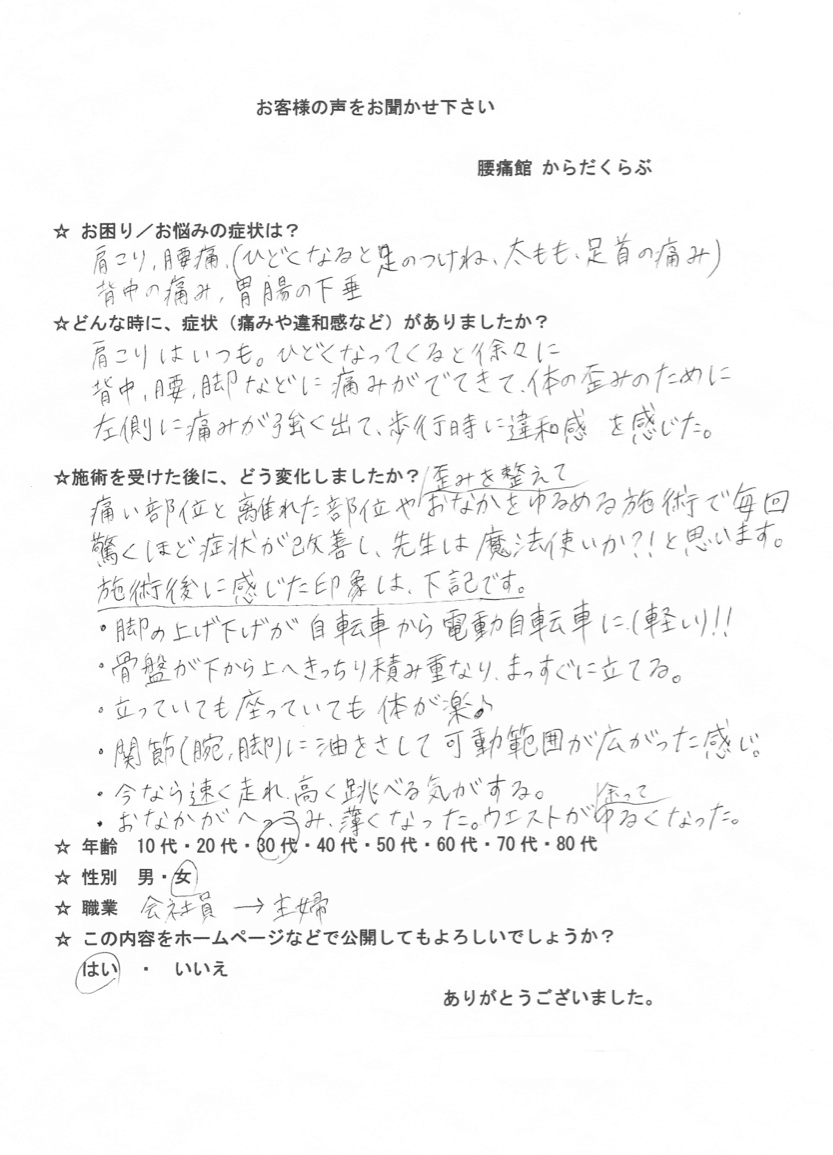 お客様の声をお聞かせ下さい
腰痛館 からだくらぶ
☆ お困り／お悩みの症状は？
肩こり,腰痛,(ひどくなると足のつけね、太もも、足首の痛み)
背中の痛み,胃腸の下垂
☆どんな時に、症状（痛みや違和感など）がありましたか？
肩こりはいつも。ひどくなってくると徐々に
背中,腰,脚などに痛みがでてきて、体の歪みのために
左側に痛みが強く出て、歩行時に違和感を感じた。
☆施術を受けた後に、どう変化しましたか？
歪みを整えて
痛い部位と離れた部位やおなかをゆるめる施術で毎回
驚くほど症状が改善し、先生は魔法使いか?!と思います。
施術後に感じた印象は、下記です。
・脚の上げ下げが自転車から電動自転車に(軽い)!!
・骨盤が下から上へきっちり積み重なり、まっすぐに立てる。
・立っていても座っていても体が楽♪
・関節(腕,脚)に油をさして可動範囲が広がった感じ。
・今なら速く走れ、高く跳べる気がする。
余って
・おなかがへっこみ、薄くなった。ウエストがゆるくなった。
☆ 年齢 10代・20代・30代・40代・50代・60代・70代・80代
☆ 性別 男・女
☆ 職業 会社員 → 主婦
☆ この内容をホームページなどで公開してもよろしいでしょうか？
はい ・ いいえ
ありがとうございました。